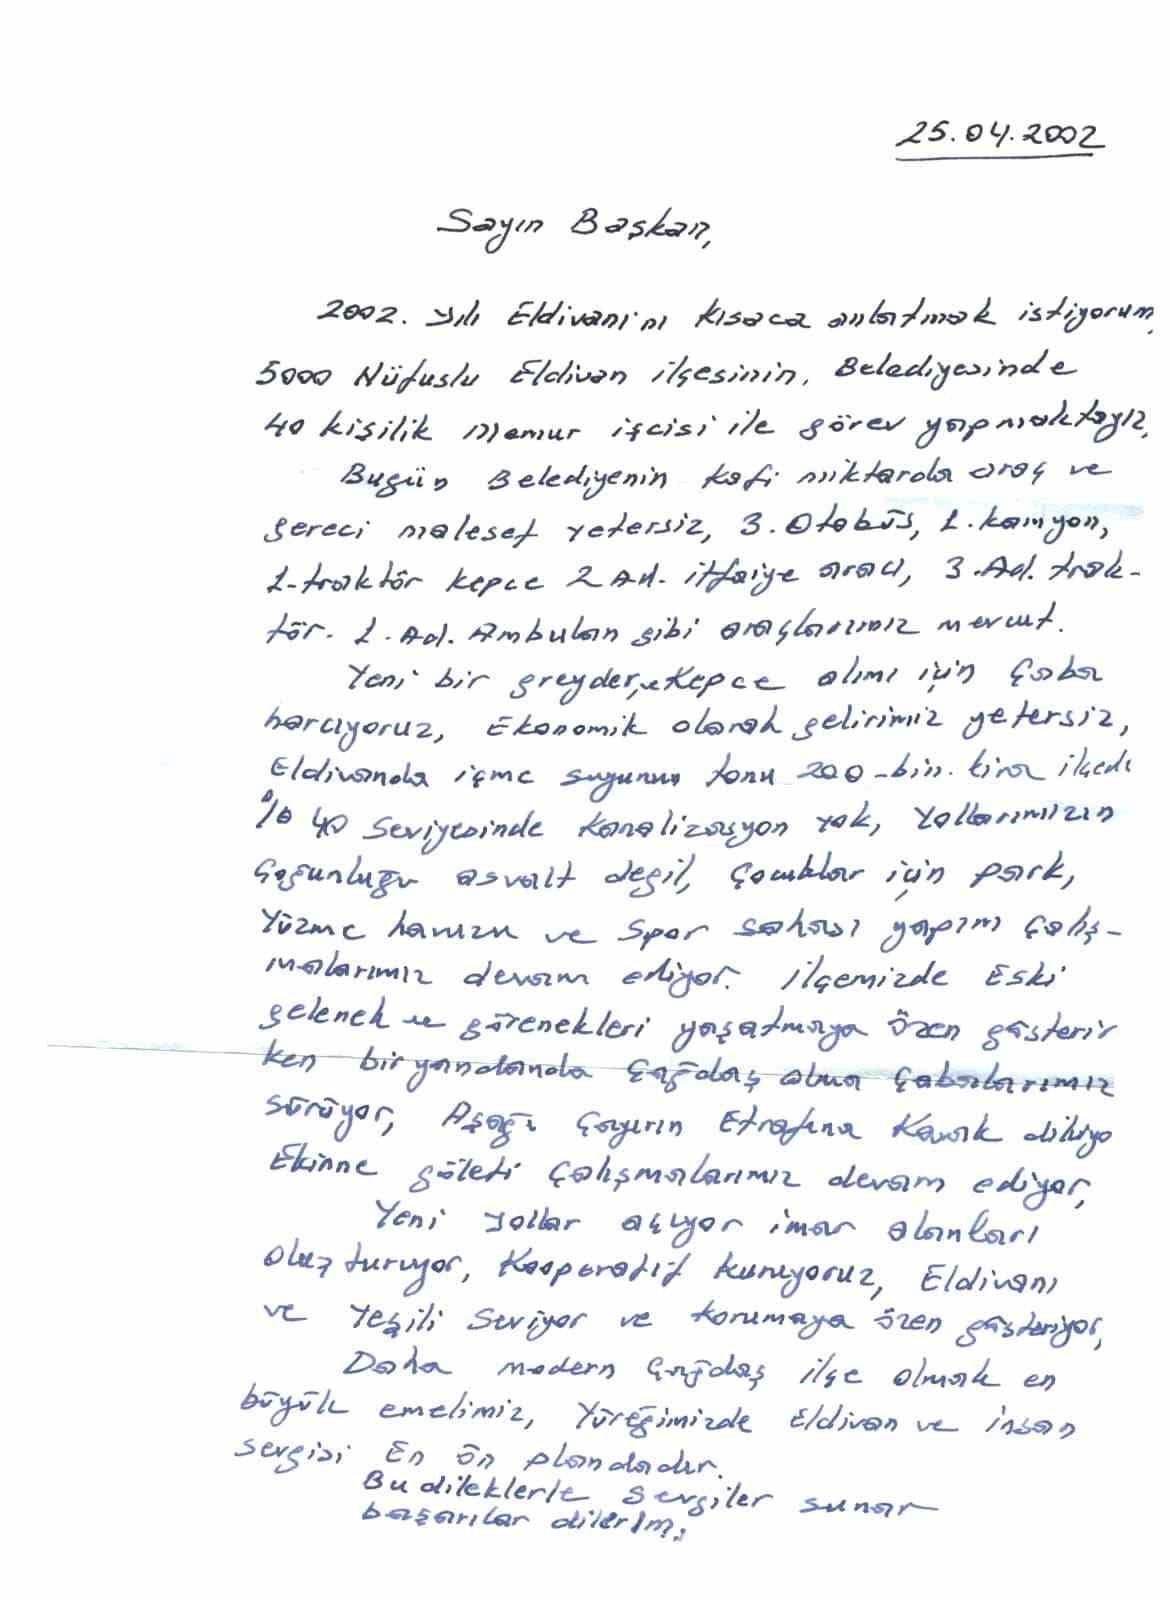 25.04.2002
Sayın Başkan,
2002. yılı Eldivanını kısaca anlatmak istiyorum,
5000 Nüfuslu Eldivan ilçesinin, Belediyesinde
40 kişilik memur işcisi ile görev yapmaktayız,
Bugün Belediyenin kafi miktarda araç ve
gereci malesef yetersiz, 3. Otobüs, 1. kamyon,
1-traktör kepce 2 Ad. itfaiye aracı, 3.Ad. trak-
tör. 1. Ad. Ambulan gibi araçlarımız mevcut.
Yeni bir greyder, ve Kepce alımı için Çaba
harcıyoruz, Ekonomik olarak gelirimiz yetersiz,
Eldivanda içme suyunun tonu 200-bin. lira ilçede
% 40 seviyesinde Kanalizasyon yok, Yollarımızın
Çoğunluğu asvalt değil, Çocuklar için park,
Yüzme havuzu ve Spor sahası yapım çalış-
malarımız devam ediyor. ilçemizde Eski
gelenek ve görenekleri yaşatmaya özen gösterir
ken bir yandanda Çağdaş olma Çabalarımız
sürüyor, Aşağı Çayırın Etrafına Kavak dikiyo
Ekinne göleti Çalışmalarımız devam ediyor,
Yeni yollar açıyor imar alanları
oluşturuyor, Kooperatif kuruyoruz, Eldivanı
ve Yeşili Seviyor ve korumaya özen gösteriyor,
Daha modern Çağdaş ilçe olmak en
büyük emelimiz, Yüreğimizde Eldivan ve insan
sevgisi En ön plandadır.
Bu dileklerle sevgiler sunar
başarılar dilerim,